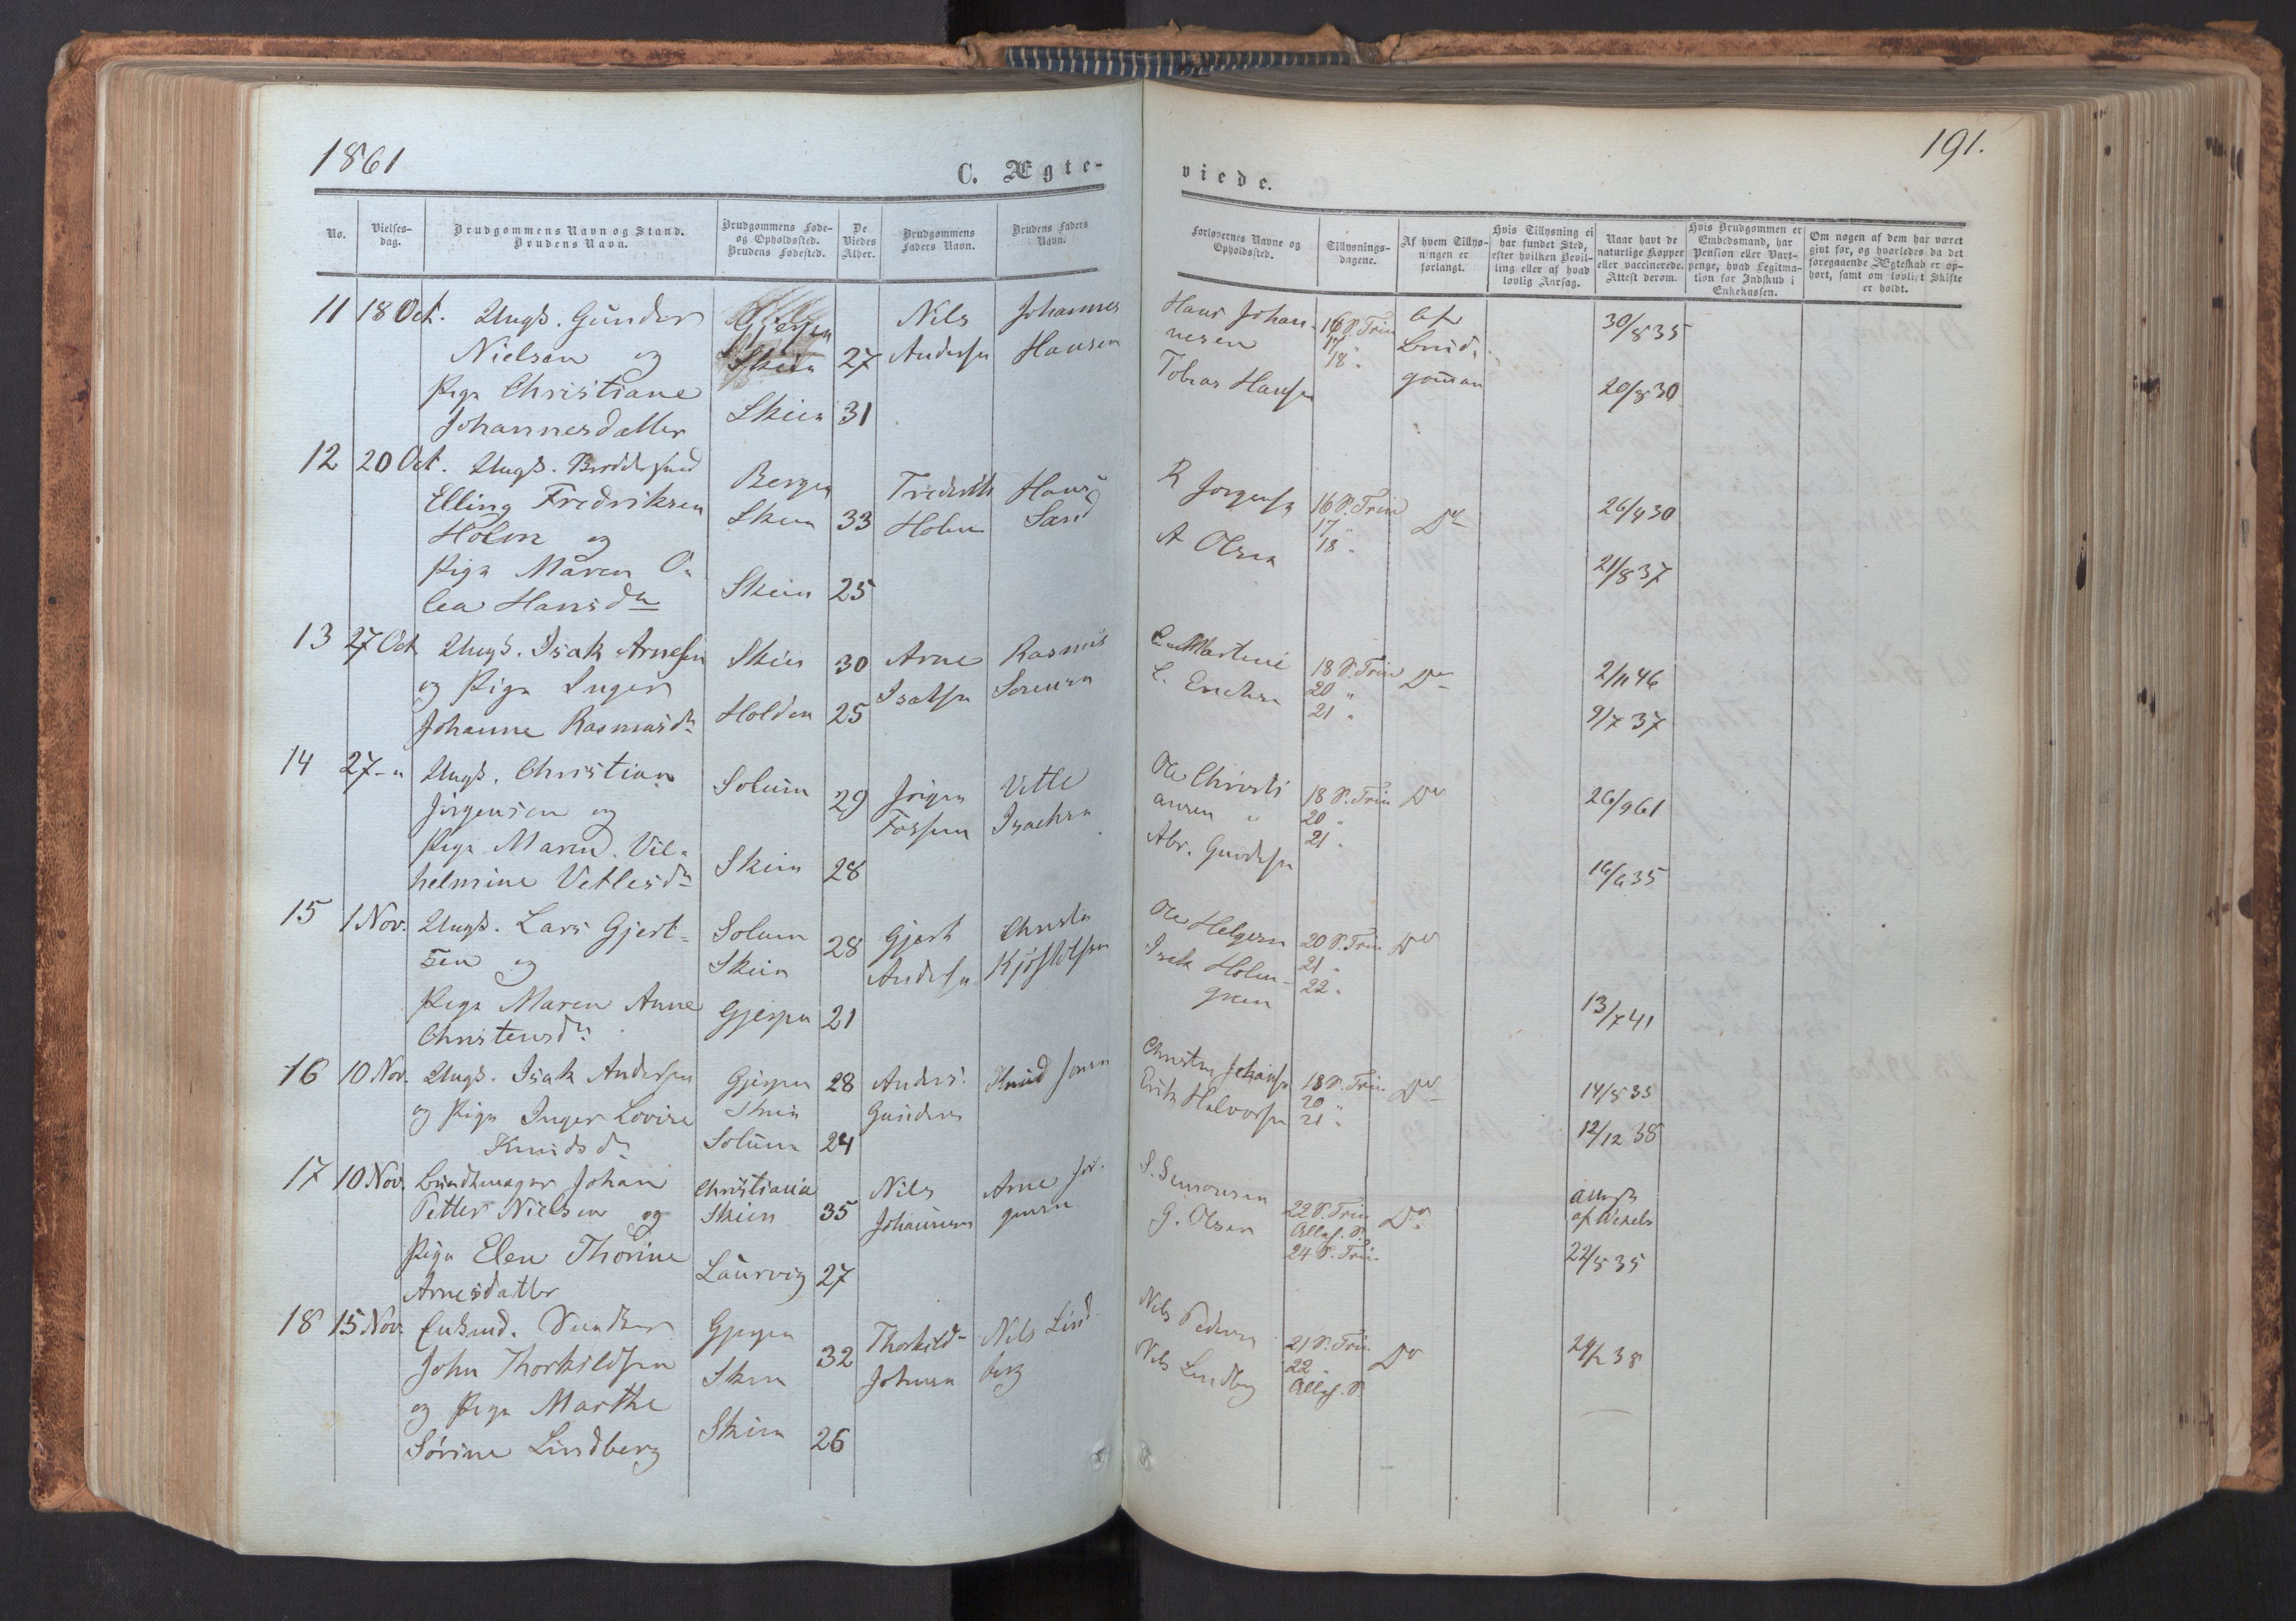 1861
C. Ægte-
No.
Vielses-
dag.
Brudgommens Navn og Stand.
Brudens Navn.
Brudgommens Føde-
og Opholdssted.
Brudens Fødested.
De
Viedes
Alder.
Brudgommens
Faders Navn.
Brudens Faders
Navn.
11 18 Oct. Ungk. Gunder
Nielsen og
Pige Christiane
Johannesdatter
Gjerpen
Skien 27
Skien 31
Nils
Andersen
Johannes
Hansen
12 20 Oct. Ungk.
Elling Fredriksen
Holm og
Pige Maren O-
lea Hansdr
Bergen
Skien 33
Skien 25
Fredrik
Holm
Hans
Sand
13 27 Oct Ungk. Isak Arnesen
og Pige Inger
Johanne Rasmusdr
Skien 30
Holden 25
Arne
Isaksen
Rasmus
Sorensen
14 27 - " Ungk. Christian
Jørgensen og
Pige Maren Vil-
helmine Vetlesdr
Solum 29
Skien 28
Jørgen
Fossum
Vetle
Isachsen
15 1 Nov. Ungk. Lars Gjert-
sen og
Pige Maren Anne
Christensdr
Solum
Skien 28
Gjerpen 21
Gjert
Andersen
Christen
Kjøstolsen
16 10 Nov. Ungk. Isak Andersen
og Pige Inger Lovise
Knudsdr
Gjerpen 28
Skien
Solum 24
Anders
Gunders
Knud Jonsen
17 10 Nov. Bundtmager Johan
Petter Nielsen og
Pige Elen Thorine
Arnesdatter
Christiania
Skien 35
Laurvig 27
Nils
Johannesen
Arne Jør-
gensen
18 15 Nov. Enkemd.
John Thorkildsen
og Pige Marthe
Sørine Lindberg
Gjerpen
Skien 32
Skien 26
Thorkild
Johnsen
Nils Lind-
berg
191.
viede.
Forlovernes Navne og
Opholdssted.
Tillysnings-
dagene.
Af hvem Tillys-
ningen er
forlangt.
Hvis Tillysning ei
har fundet Sted,
efter hvilken Bevil-
ling eller af hvad
lovlig Aarsag.
Naar havt de
naturlige Kopper
eller vaccinerede.
Attest derom.
Hvis Brudgommen er
Embedsmand, har
Pension eller Vart-
penge, hvad Legitima-
tion for Indskud i
Enkekassen.
Om nogen af dem har været
givt før, og hvorledes da det
foregaaende Ægteskab er op-
hørt, samt om lovligt Skifte
er holdt.
Hans Johan-
nesen
Tobias Hansen
16 S. Trin
17 "
18 "
Af
Brud-
gomman
30/8 35
20/8 30
R Jørgensen
A Olsen
16 S. Trin
17 "
18 "
Do
26/9 30
21/8 37
Martini
L. Erichsen
18 S. Trin
20 "
21 "
Do
2/11 46
9/7 37
Ole Christi
ansen
Abr. Gundersen
18 S. Trin
20 "
21 "
Do
26/9 61
16/6 35
Ole Helgesen
Isak Holm-
gren
20 S. Trin
21 "
22 "
Do
13/7 41
Christen Johansen
Erik Halvorsen
18 S. Trin
20 "
21 "
Do
14/8 35
12/12 38
S. Simonsen
G. Olsen
22 S. Trin
Alleh. S.
24 S. Trin
Do
af Wexels
22/5 35
Nils Pedersen
Nils Lindberg
21 S. Trin
22 "
Alleh. S.
Do
24/2 38